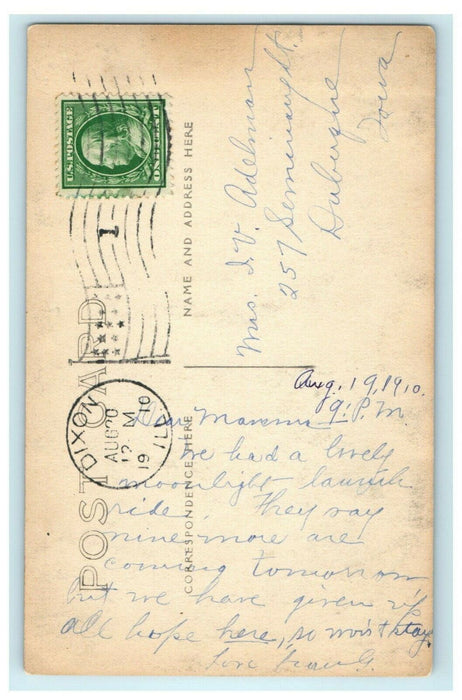 POST CARD
CORRESPONDENCE HERE
NAME AND ADDRESS HERE
U.S. POSTAGE
ONE CENT
1
DIXON
AUG 20
12 M
1910
ILL.
Mrs. I. V. Adelman
257 Seminary St.
Dubuque
Iowa
Aug. 19, 1910.
9: P. M
Dear Mamma
we had a lovely
moonlight launch
ride. They say
nine more are
coming tomorrow
but we have given up
all hope here, so won't stay.
Love from G.